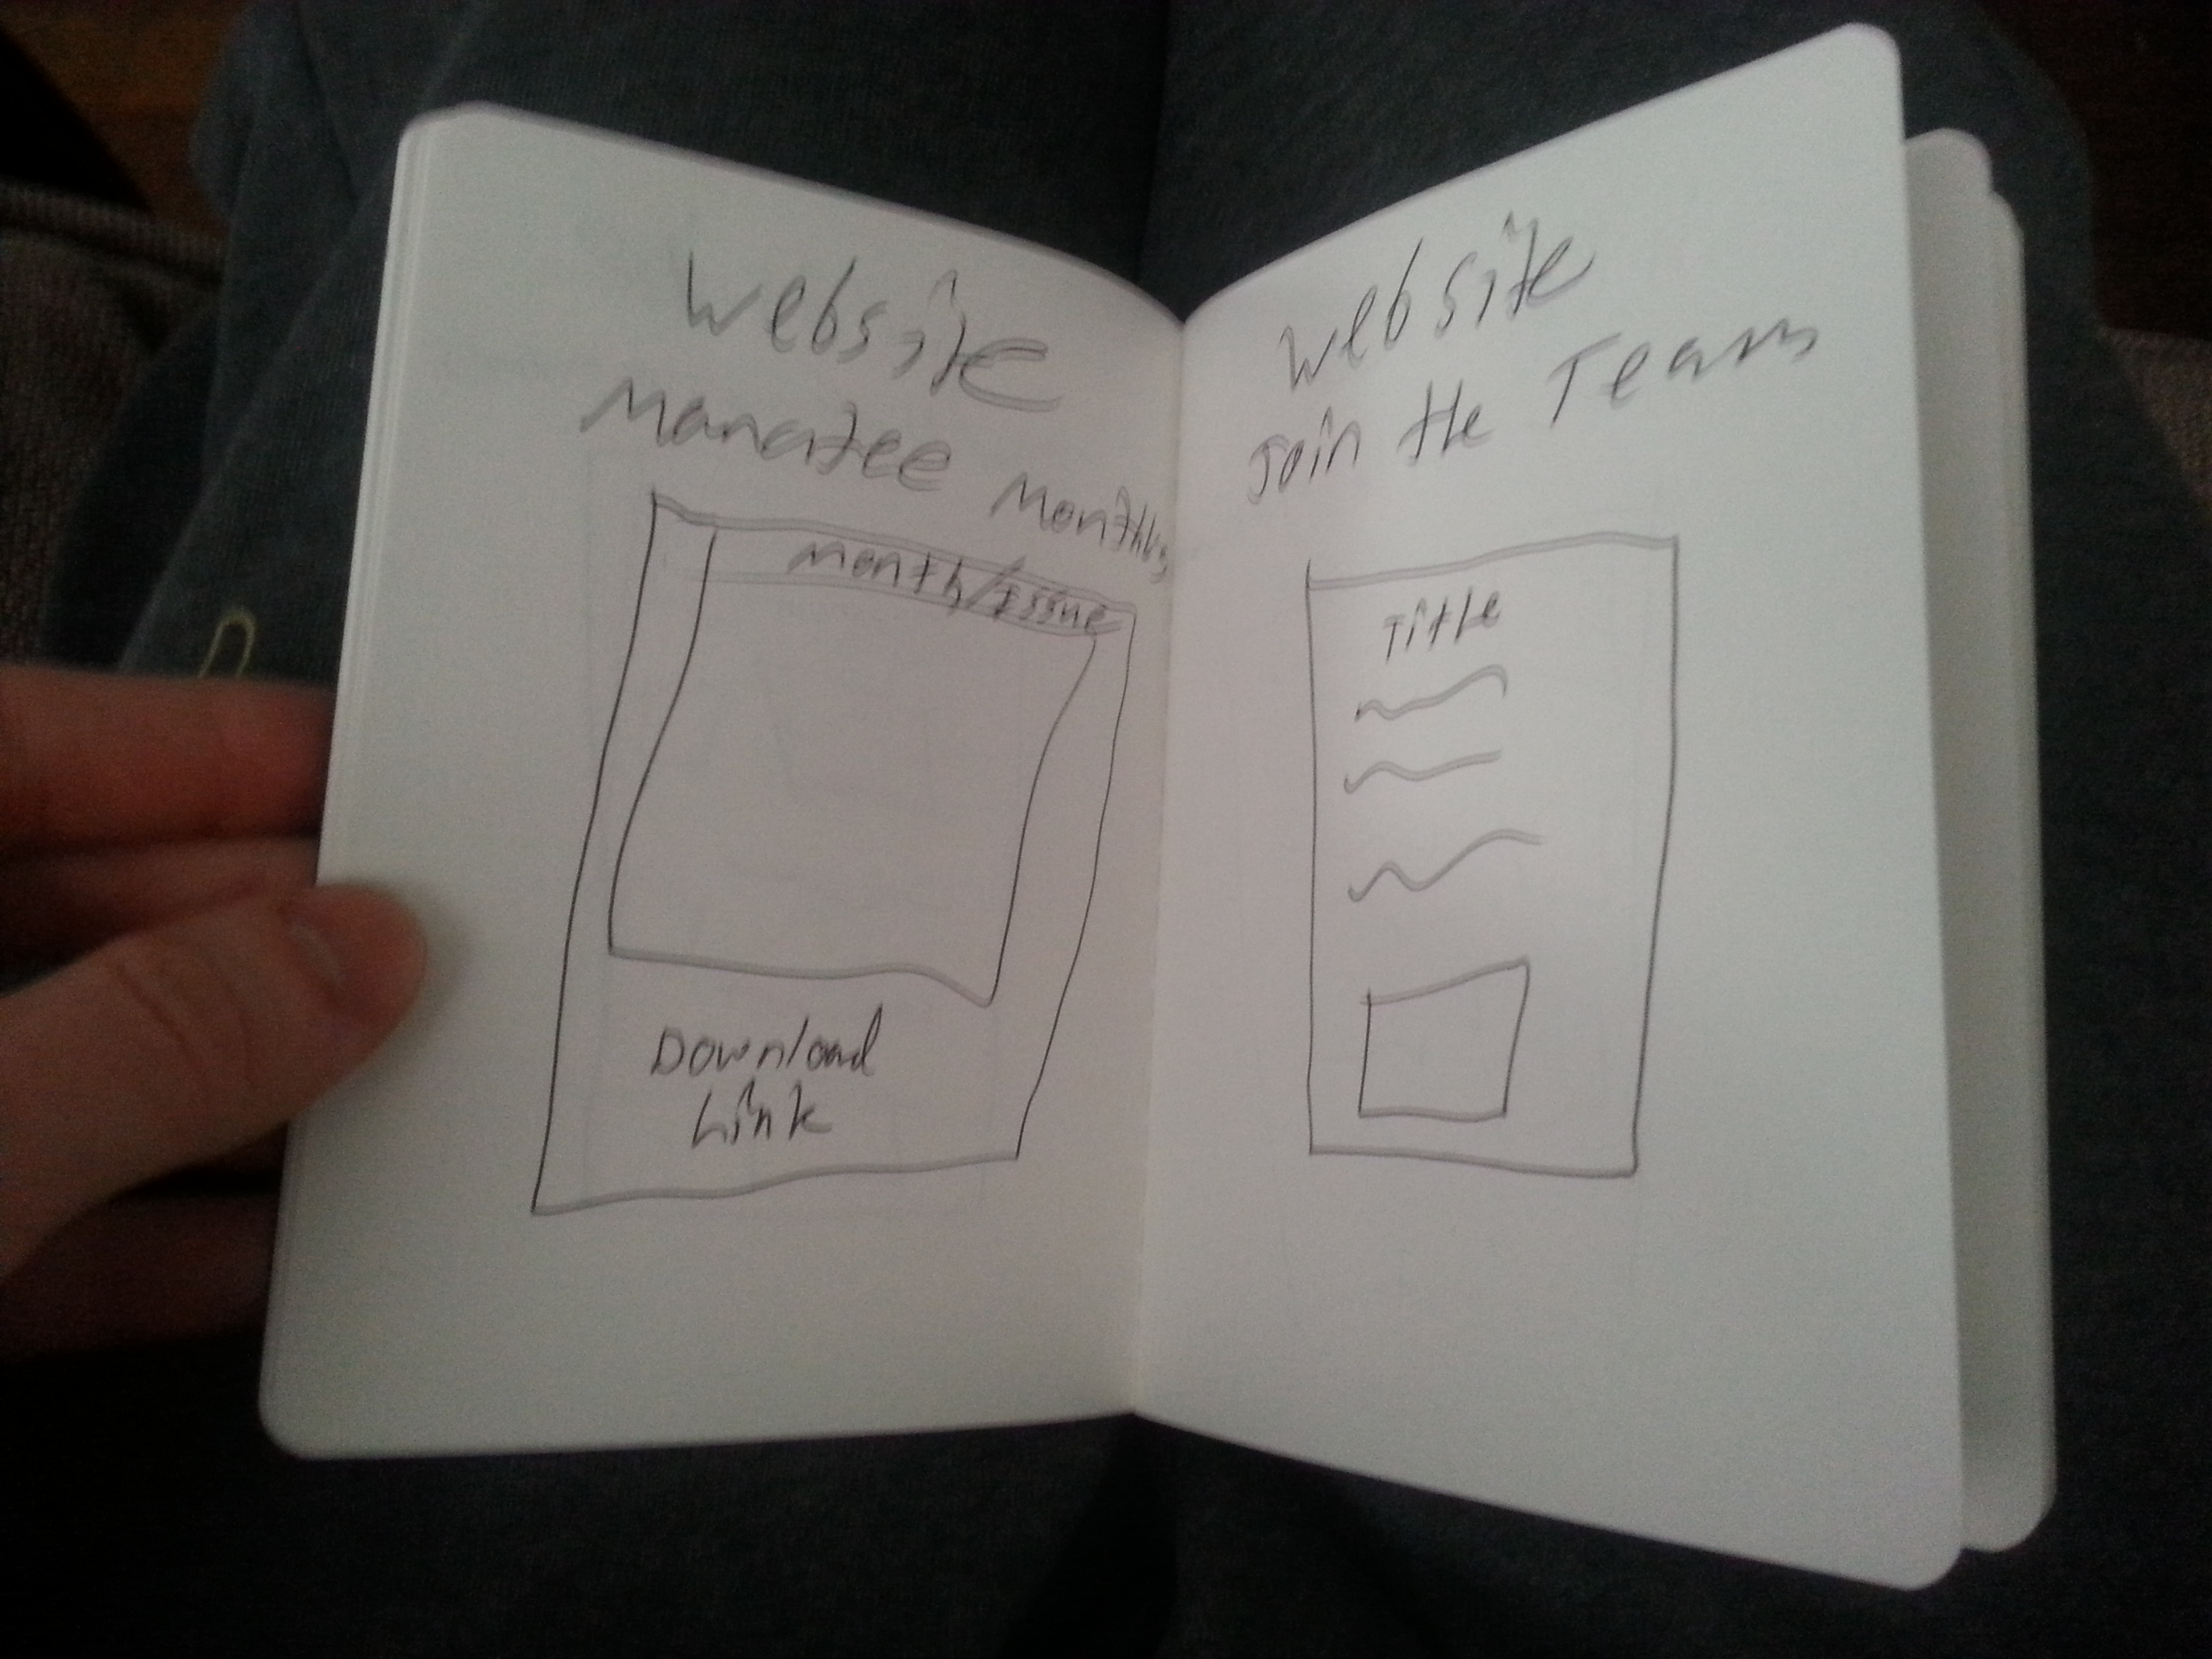 Website
Manatee Monthly
Month/Issue
Download
Link
Website
Join the Team
Title